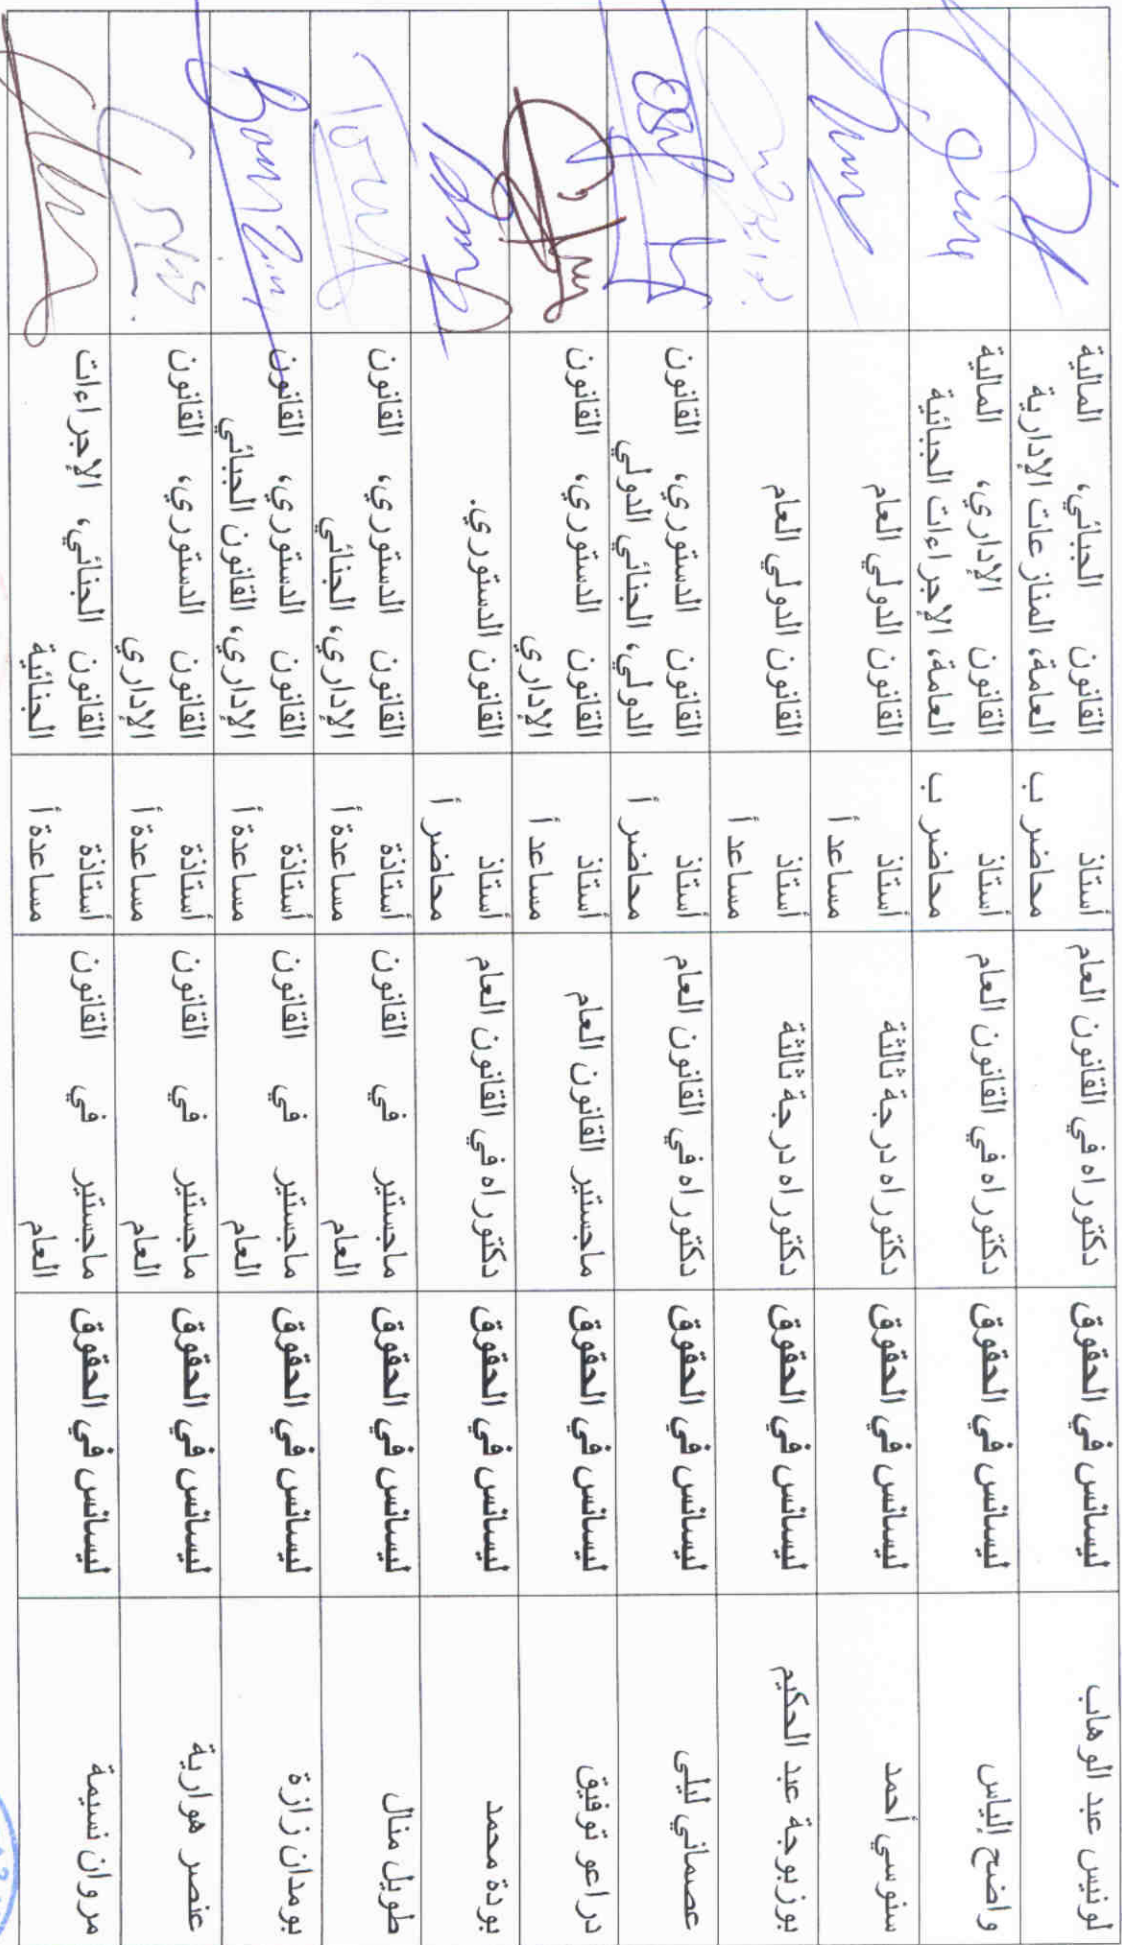 لونيس عبد الوهاب
ليسانس في الحقوق
دكتوراه في القانون العام
أستاذ
محاضر ب
القانون الجبائي، المالية
العامة، المنازعات الإدارية
واضح إلياس
ليسانس في الحقوق
دكتوراه في القانون العام
أستاذ
محاضر ب
القانون الإداري، المالية
العامة، الإجراءات الجبائية
سنوسي أحمد
ليسانس في الحقوق
دكتوراه درجة ثالثة
أستاذ
مساعد أ
القانون الدولي العام
بوزبوجة عبد الحكيم
ليسانس في الحقوق
دكتوراه درجة ثالثة
أستاذ
مساعد أ
القانون الدولي العام
عصماني ليلى
ليسانس في الحقوق
دكتوراه في القانون العام
أستاذ
محاضر أ
القانون الدستوري، القانون
الدولي، الجنائي الدولي
دراعو توفيق
ليسانس في الحقوق
ماجستير القانون العام
أستاذ
مساعد أ
القانون الدستوري، القانون
الإداري
بودة محمد
ليسانس في الحقوق
دكتوراه في القانون العام
أستاذ
محاضر أ
القانون الدستوري.
طويل منال
ليسانس في الحقوق
ماجستير في القانون
العام
أستاذة
مساعدة أ
القانون الدستوري، القانون
الإداري، الجنائي
بومدان زازة
ليسانس في الحقوق
ماجستير في القانون
العام
أستاذة
مساعدة أ
القانون الدستوري، القانون
الإداري، القانون الجبائي
عنصر هوارية
ليسانس في الحقوق
ماجستير في القانون
العام
أستاذة
مساعدة أ
القانون الدستوري، القانون
الإداري
مروان نسيمة
ليسانس في الحقوق
ماجستير في القانون
العام
أستاذة
مساعدة أ
القانون الجنائي، الإجراءات
الجنائية